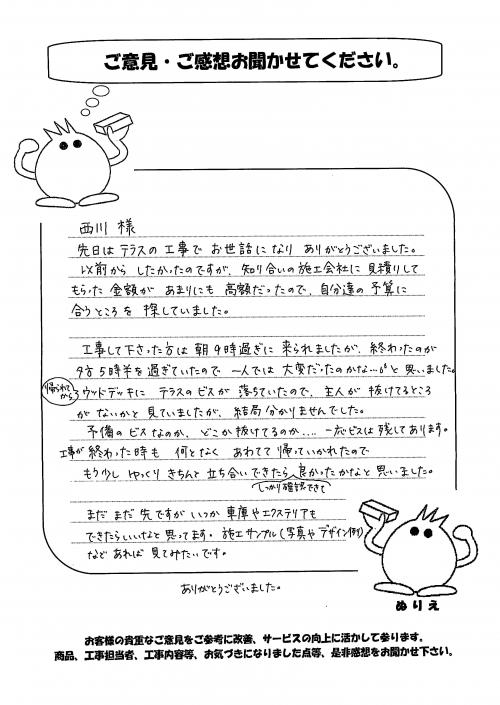 ご意見・ご感想お聞かせてください。
西川 様
先日は テラスの工事で お世話になり ありがとうございました。
以前から したかったのですが、知り合いの施工会社に見積りして
もらった 金額が あまりにも 高額だったので、自分達の予算に
合うところを 探していました。
工事して下さった方は 朝9時過ぎに 来られましたが、終わったのが
夕方5時半を過ぎていたので 一人では 大変だったのかな…と 思いました。
帰られてから
ウッドデッキに テラスのビスが 落ちていたので、主人が 抜けてるところ
がないかと 見ていましたが、結局 分かりませんでした。
予備のビスなのか、どこか抜けてるのか…. 一応ビスは残してあります。
工事が終わった時も 何となく あわてて 帰っていかれたので
もう少し ゆっくり きちんと 立ち合いできたら 良かったかなと 思いました。
しっかり確認できて
まだ まだ 先ですが いつか 車庫やエクステリアも
できたらいいなと 思ってます。施工サンプル(写真や デザイン例)
など あれば 見てみたいです。
ありがとうございました。
ぬりえ
お客様の貴重なご意見をご参考に改善、サービスの向上に活かして参ります。
商品、工事担当者、工事内容等、お気づきになりました点等、是非感想をお聞かせ下さい。